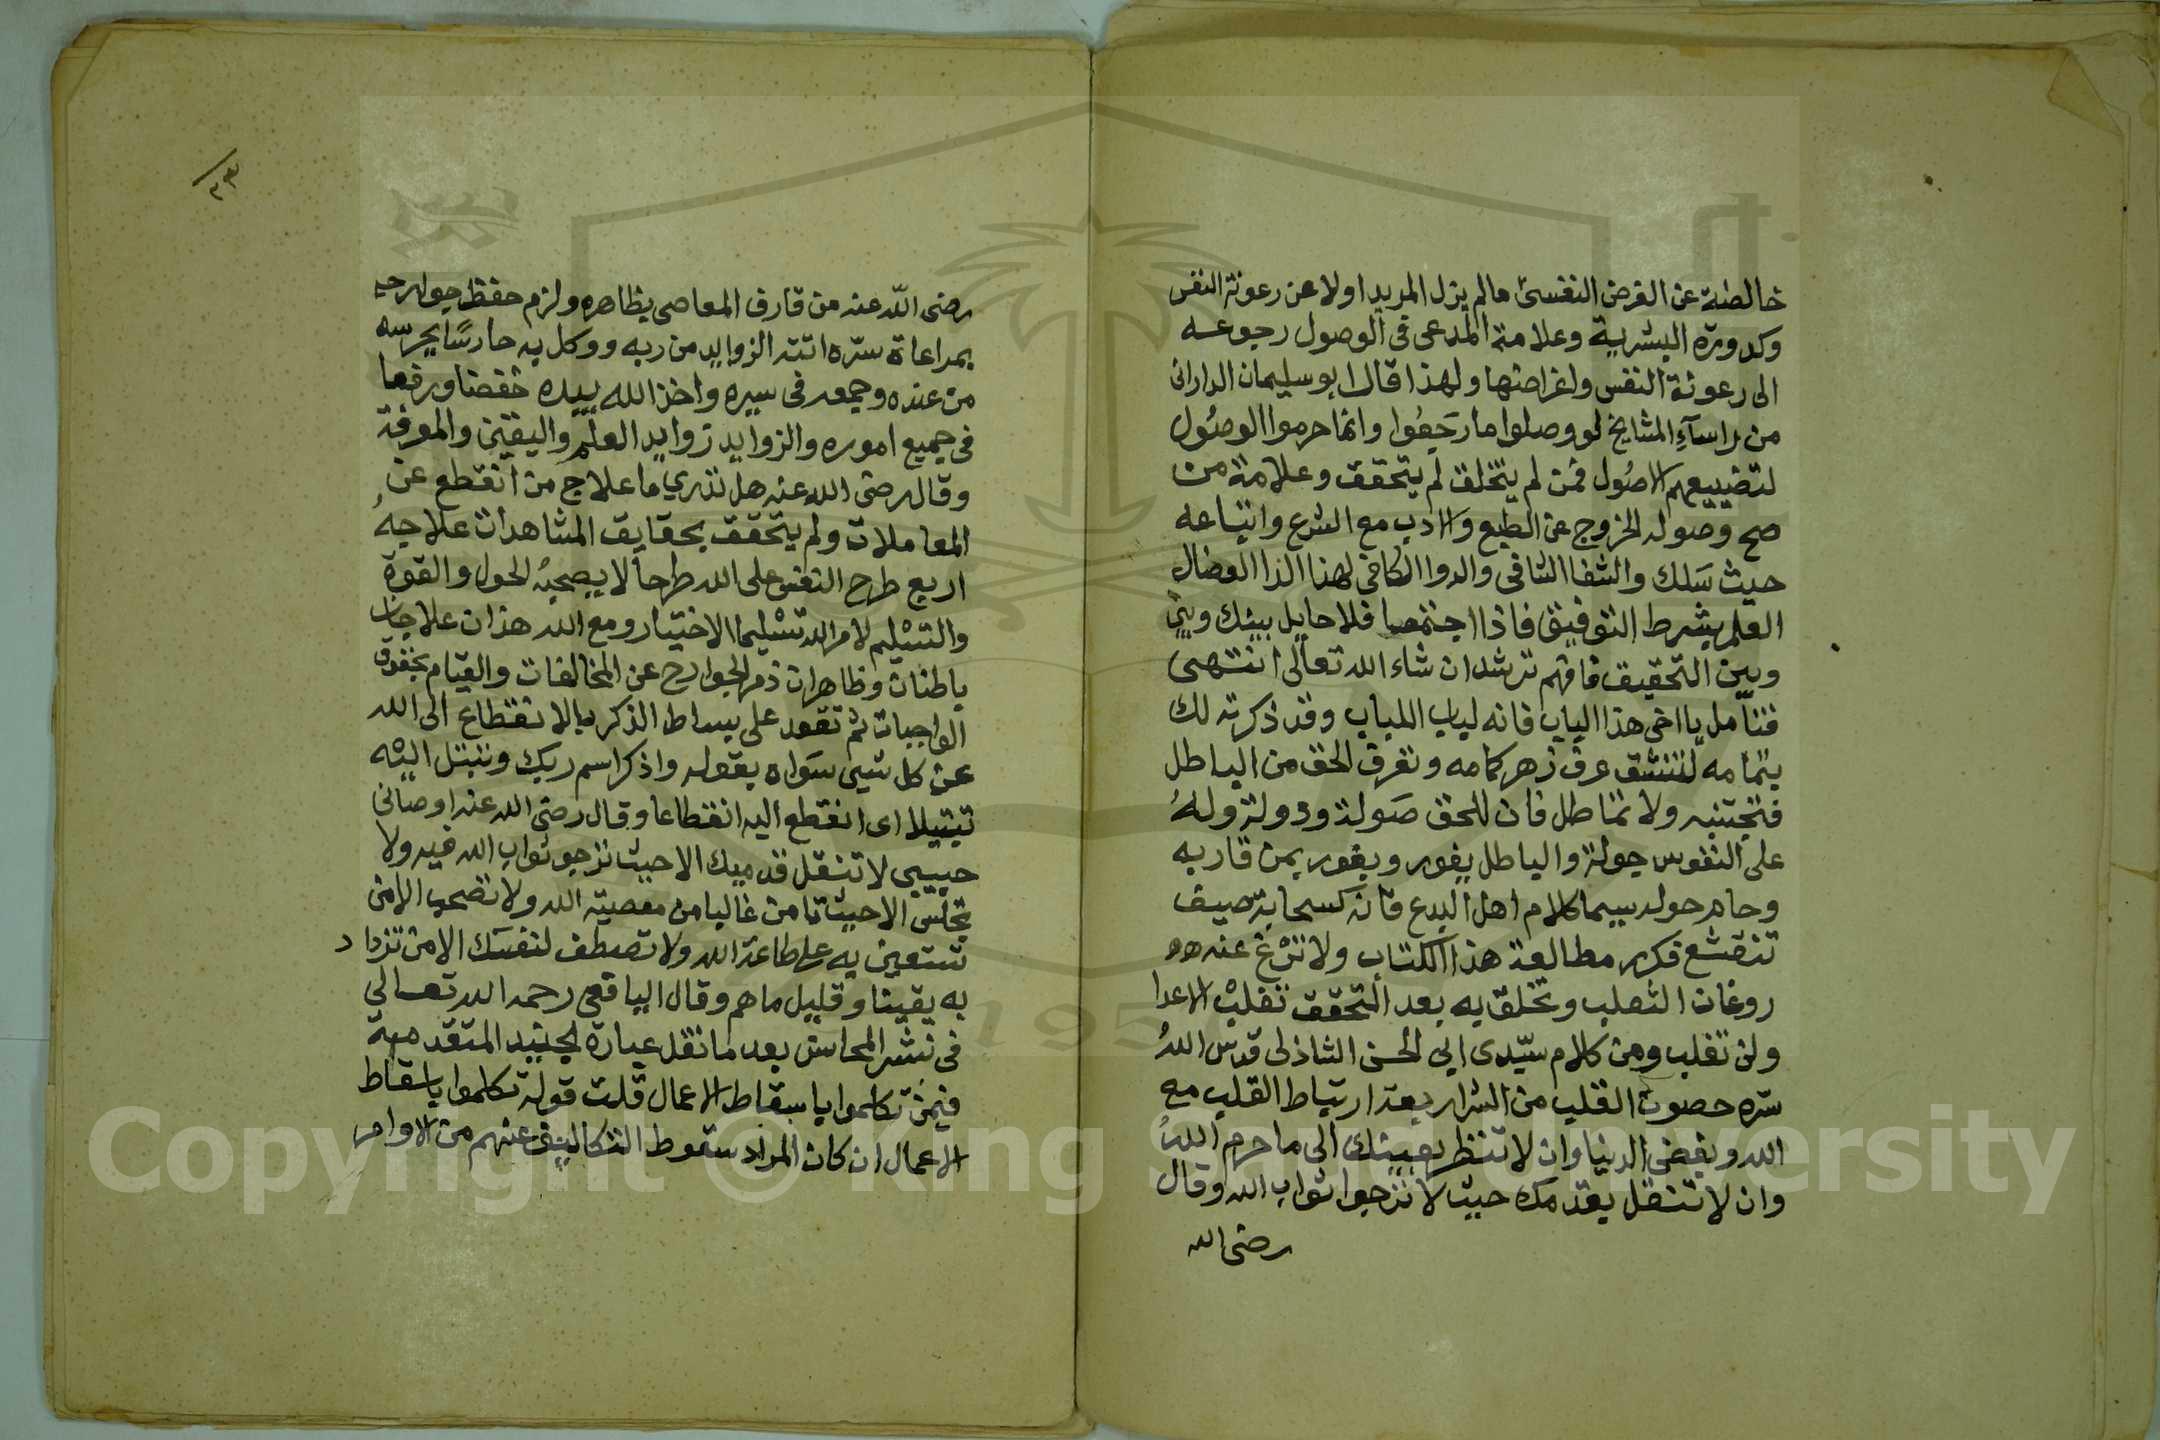 خالطته عن الغرض النفسي مالم يزل المريد اولا عن رعونة النفس
وكدورة البشرية وعلامة المدعى فى الوصول رجوعه
الى رعونة النفس واغراضها ولهذا قال ابو سليمان الدارانى
من راسآءِ المشايخ لو وصلوا ما رَجَعُوا وانما حرموا الوصُول
لتضييعهم الاصُول فمن لم يتخلق لم يتحقق وعلامة من
صح وصوله الخروج عن الطبع والادب مع الشرع واتباعه
حيث سَلك والشفا الشافى والدوا الكافى لهذا الدا العضال
العلم بشرط التوفيق فاذا اجتمعا فلا حايل بينك وبين
وبين التحقيق فافهم ترشد ان شاء الله تعالى انتهى
فتأمل يا اخى هذا الباب فانه لباب اللباب وقد ذكرته لك
بتمامه لتنشق عرف زهر كمامه وتعرف الحق من الباطل
فتجتنبه ولا تماطل فان للحق صَولة ودولة ولهُ
على النفوس جولة والباطل يفور ويغور بمن قاربه
وحام حوله سيما كلام اهل البدع فانه كسحابة صيف
تنقشع فكرر مطالعة هذا الكتاب ولا تزغ عنه
روغان الثعلب وتخلق به بعد التحقق تغلبْ الاعدا
ولن تغلب ومن كلام سيّدى ابي الحسن الشاذلى قدس اللهُ
سّره حصون القلب من الشرار بعة ارتباط القلب مع
الله وبغض الدنيا وان لا تنظر بعينك الى ما حرم اللهُ
وان لا تنقل بقدمك حيث لا ترجوا ثواب الله وقال
رضى الله
٢٣
رضى اللّه عنه من قارف المعاصى بظاهره ولزم حفظ جوارحه
بمراعاة سرّه اتته الزوايد من ربه ووكل به حارسًا يحرسه
من عنده وجمعه فى سيره واخذ الله بيده خفضا ورفعا
فى جميع اموره والزوايد زوايد العلم واليقين والمعرفة
وقال رضى الله عنه هل تدري ما علاج من انقطع عن
المعاملات ولم يتحقق بحقايق المشاهدات علاجهُ
اربع طرح النفس على الله طرحا لا يصحبهُ الحول والقوة
والتسْليم لامر الله تسْليما لا اختيار ومع الله هذان علاجان
باطنان وظاهران ذم الجوارح عن المخالفات والقيام بحقوق
الواجبات ثم تقعد على بساط الذكر بالانقطاع الى الله
عن كل شيى سَواه بقوله واذكر اسم ربك وتبتل اليْه
تبتيلا اى انقطع اليه انقطاعا وقال رضى الله عنه اوصانى
حبيبى لا تنقل قدميك الا حيث ترجو ثواب الله فيه ولا
تجلس الا حيث تامن غالبا من معصية الله ولا تصحب الا من
تستعين به على طاعة الله ولا تصطف لنفسَك الا من تزداد
به يقينا وقليل ما هم وقال اليافعى رحمه الله تعالى
فى نشر المحاسن بعد ما نقل عبارة الجنيد المتقدمة
فيمن تكلموا باسقاط الاعمال قلت قوله تكلموا باسقاط
الاعمال ان كان المراد سقوط التكاليف عنهم من الاوامر